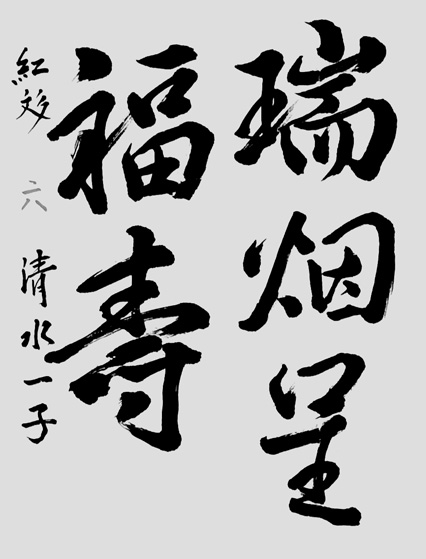 瑞烟呈
福壽
紅翆 六 清水一子